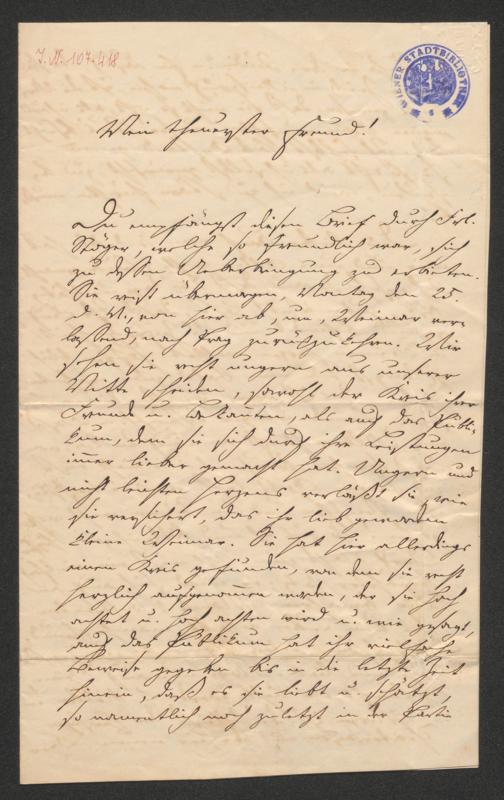 J. N. 107.418
WIENER STADTBIBLIOTHEK
Mein theuerster Freund!
Du empfängst diesen Brief durch Frl.
Stöger, welche so freundlich war, sich
zu dessen Ueberbringung zu erbieten.
Sie reist übermorgen, Montag den 25.
d. M., von hier ab, um, Weimar ver-
lassend, nach Prag zurückzukehren. Wir
sehen sie recht ungern aus unserer
Mitte scheiden, sowohl der Kreis ihrer
Freunde u. Bekannten, als auch das Publi-
kum, dem sie sich durch ihre Leistungen
immer lieber gemacht hat. Ungern und
nicht leichten Herzens verläßt sie, wie
sie versichert, das ihr lieb gewordene
kleine Weimar. Sie hat hier allerdings
einen Kreis gefunden, von dem sie recht
herzlich aufgenommen worden, der sie hoch
achtet u. hoch achten wird u. wie gesagt,
auch das Publikum hat ihr vielfache
Beweise gegeben bis in die letzte Zeit
hinein, daß es sie liebt u. schätzt,
so namentlich noch zuletzt in der Partie